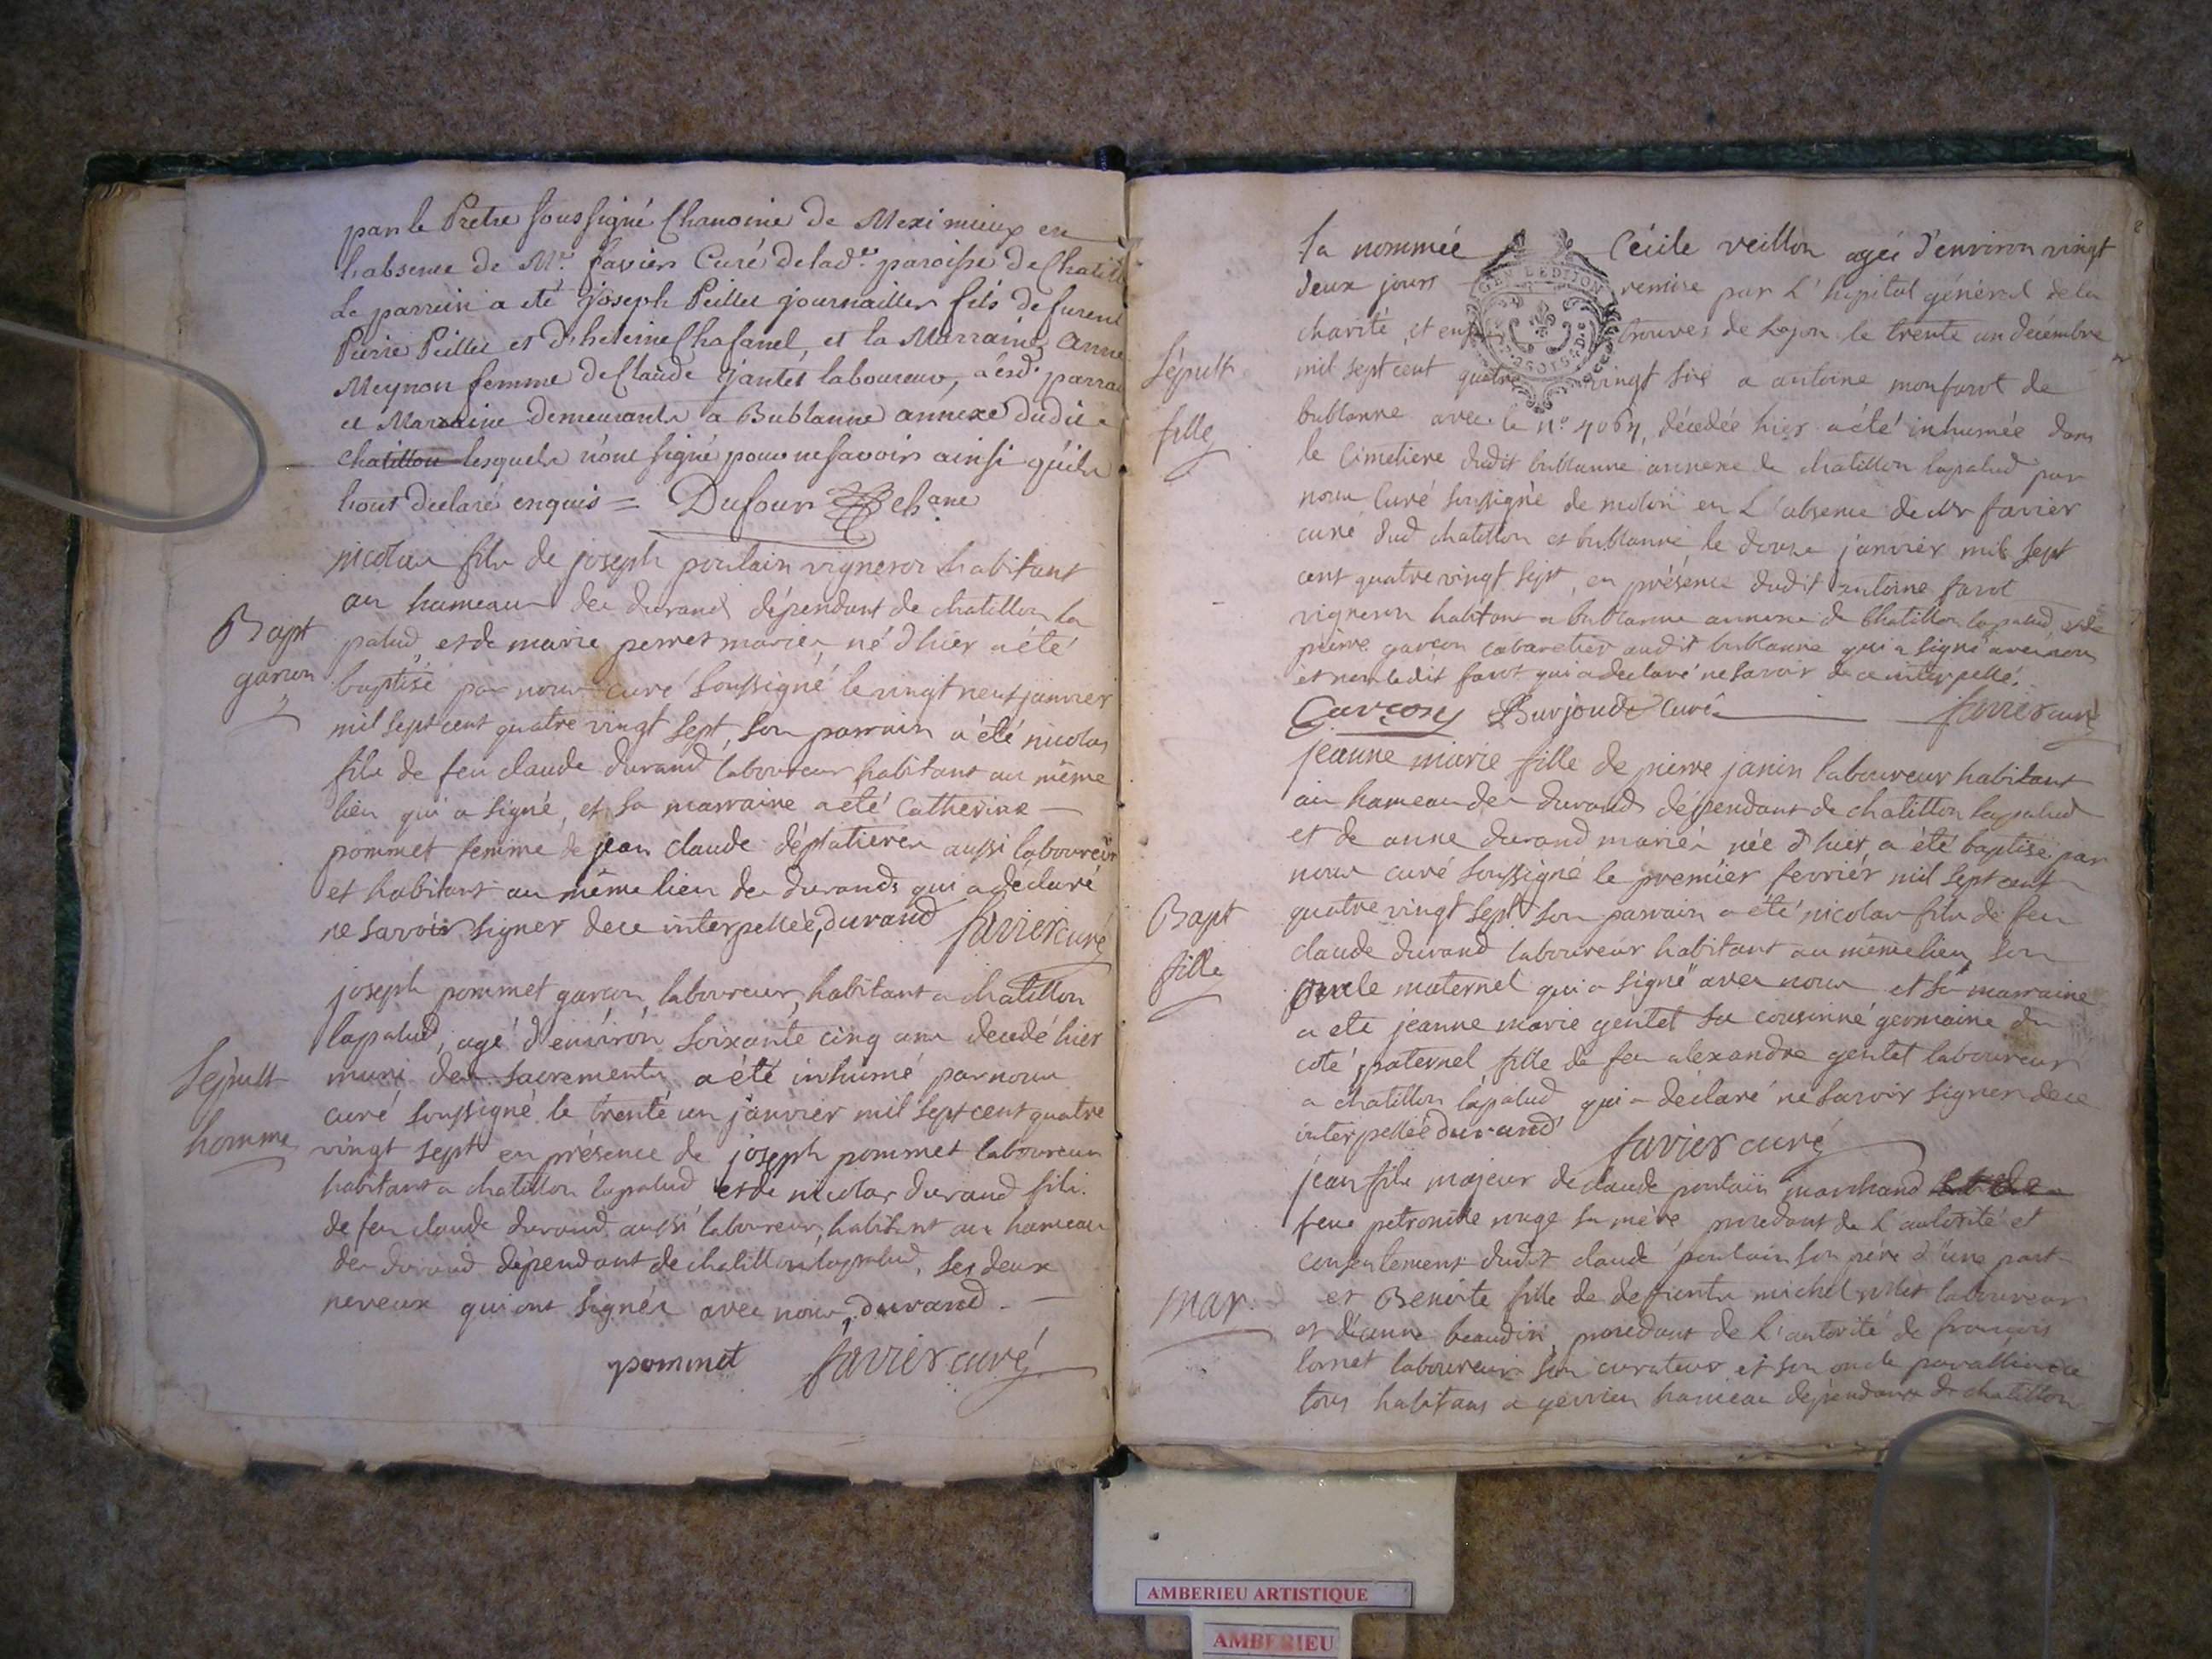 par le Pretre soussigné Chanoine de Meximieux en
l'absence de Mr. favier Curé de lad.e paroisse de Chatill
Le parrein a eté joseph Peillet journaillier fils de furent
Pierre Peillet et d'heleine Chafanel, et la Marraine, Anne
Meynon femme de Claude jantet laboureur, lesd. parrai
et Marraine demeurants a Bublanne annexe dudit
chatillon lesquels n'ont signé pour ne savoir ainsi qu'ils
l'ont declaré enquis = Dufour chane
Bapt
garcon
nicolas fils de joseph poulain vigneron habitant
au hameau des durand dépendant de chatillon la
palud, et de marie perret mariés né d'hier a été
baptisé par nous curé soussigné le vingt neuf janvier
mil sept cent quatre vingt sept, son parrain a été nicolas
fils de feu claude durand laboureur habitant au même
lieu qui a signé, et sa marraine a été Catherine
pommet femme de jean claude déplatieres aussi laboureur
et habitant au même lieu des durands qui a déclaré
ne savoir signer de ce interpellée, durand favier curé
Sépult
homme
joseph pommet garcon, laboureur, habitant a chatillon
lapalud, agé d'environ soixante cinq ans decedé hier
muni des sacrements a été inhumé par nous
curé soussigné le trente un janvier mil sept cent quatre
vingt sept en présence de joseph pommet laboureur
habitant a chatillon lapalud et de nicolas durand fils
de feu claude durand aussi laboureur, habitant au hameau
des durand dépendant de chatillon lapalud, ses deux
neveux qui ont signés avec nous, durand
pommet favier curé
Sépult
fille
la nommée Cécile veillon agée d'environ vingt
deux jours remise par l'hopital général de la
charité, et enfans trouvés de Lyon le trente un décembre
mil sept cent quatre vingt six a antoine monfarot de
bublanne avec le n.o décedée hier a été inhumée dans
le Cimetiere dudit bublanne annexe de chatillon lapalud par
nous Curé soussigné de en l'absence de Mr favier
curé dud chatillon et bublanne, le douze janvier mil sept
cent quatre vingt sept, en présence dudit antoine farot
vigneron habitant a bublanne annexe de Chatillon lapalud, et de
pierre garcon cabaretier audit bublanne qui a signé avec nous
et non ledit farot qui a déclaré ne savoir de ce interpellé.
Garcon Burjoud Curé favier curé
Bapt
fille
jeanne marie fille de pierre janin laboureur habitant
au hameau des durands dépendant de chatillon lapalud
et de anne durand mariés née d'hier a été baptisé par
nous curé soussigné le premier fevrier mil sept cent
quatre vingt sept. son parrain a été nicolas fils de feu
claude durand laboureur habitant au même lieu son
oncle maternel qui a signé avec nous et sa marraine
a ete jeanne marie gentet sa cousinne germaine du
coté paternel fille de feu alexandre gentet laboureur
a chatillon lapalud qui a déclaré ne savoir signer de ce
interpellée durand favier curé
mar.
jean fils majeur de claude poulain marchand
feue petronille sa mere procedant de l'autorité et
consentement dudit claude poulain son père d'une part
et Benoite fille de defunts michel laboureur
et d'anne beaudin procedant de l'autorité de francois
lornet laboureur son curateur et son oncle
tous habitans a gevrieu hameau dépendant de chatillon
AMBERIEU ARTISTIQUE
AMBERIEU